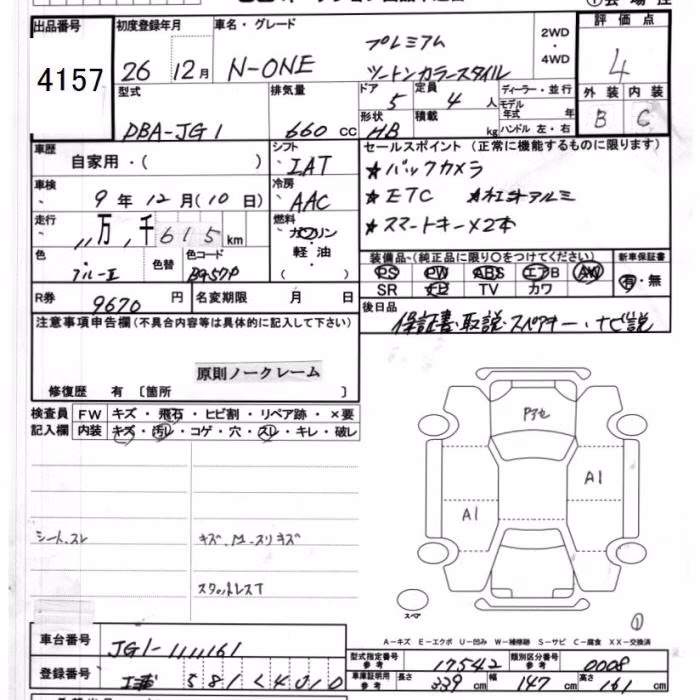 出品番号
4157
初度登録年月
26 12月
車名・グレード
N-ONE
プレミアム
ツートンカラースタイル
2WD
・
4WD
評価点
4
外装 内装
B C
型式
DBA-JG1
排気量
660 cc
ドア 5
定員 4 人
形状 HB
積載 kg
ディーラー・並行
モデル年式 年
ハンドル 左・右
車歴
自家用・( )
シフト
IAT
車検
9年12月(10日)
冷房
AAC
走行
万 千 615 km
燃料
ガソリン
軽油
( )
色
ブルーII
色替
色コード
B957P
R券 9670 円
名変期限 月 日
セールスポイント (正常に機能するものに限ります)
★バックカメラ
★ETC ★社外アルミ
★スマートキー×2本
装備品・(純正品に限り○をつけてください)
PS PW ABS エアB AW
SR ナビ TV カワ
新車保証書
有・無
後日品
保証書・取説・スペアキー・ナビ説
注意事項申告欄(不具合内容等は具体的に記入して下さい)
原則ノークレーム
修復歴 有 〔箇所 〕
検査員
記入欄
FW キズ・飛石・ヒビ割・リペア跡・×要
内装 キズ・汚レ・コゲ・穴・スレ・キレ・破レ
シート、スレ
キズ、M、スリキズ
スタットレスT
A1
A1
スペア
①
A－キズ E－エクボ U－凹み W－補修跡 S－サビ C－腐食 XX－交換済
車台番号
JG1-1111161
登録番号
型式指定番号
参考
17542
類別区分番号
参考
0008
車庫証明用
参考
長さ 339 cm
幅 147 cm
高さ 161 cm